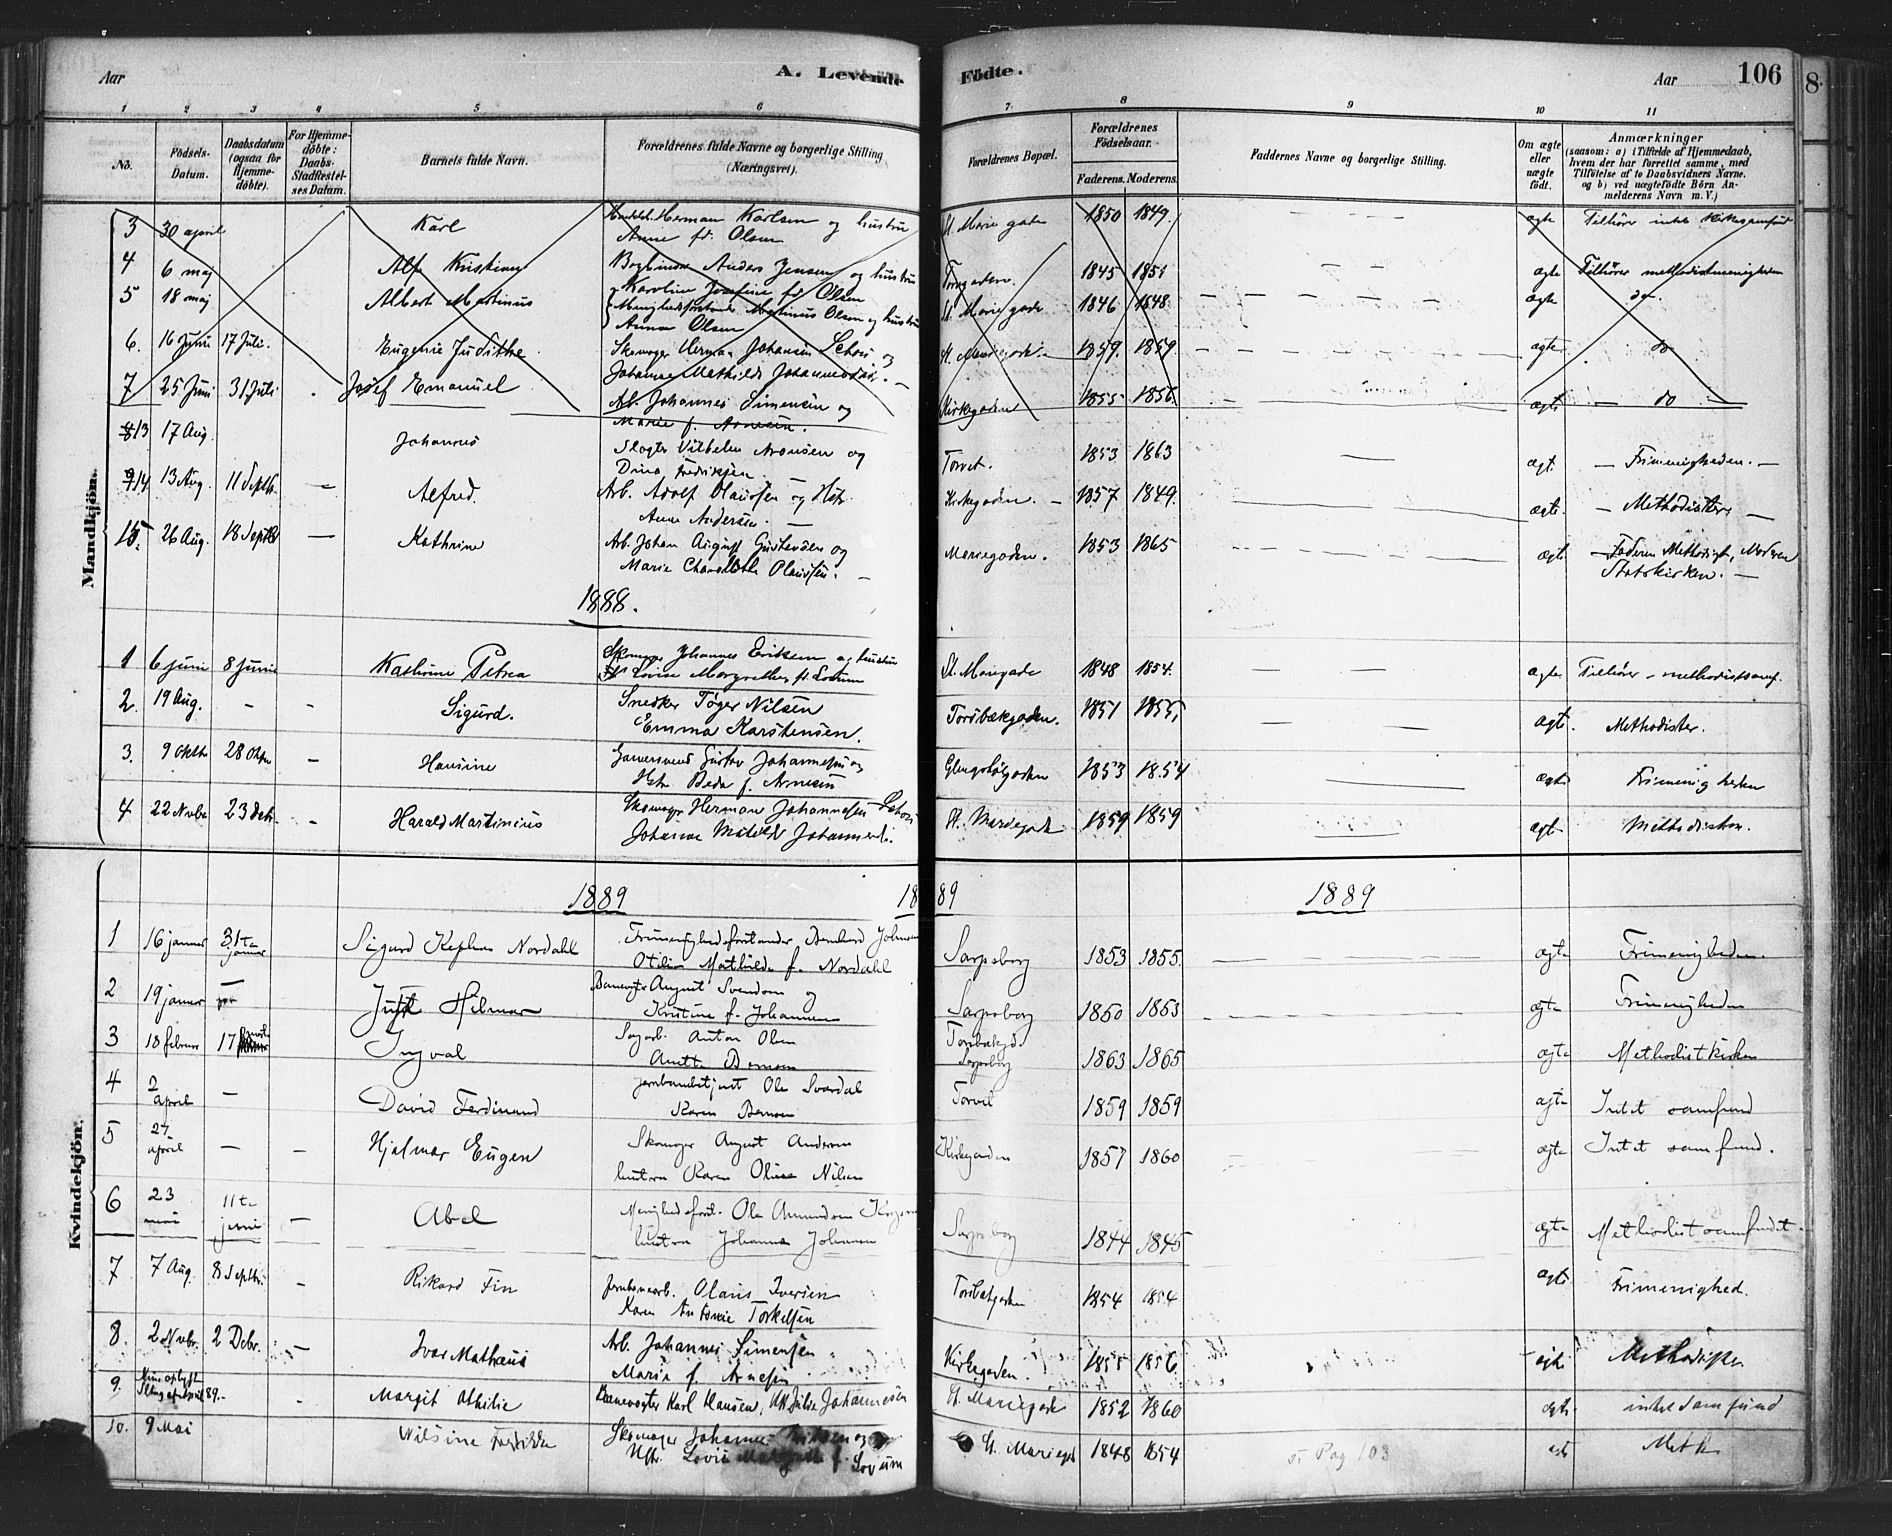 Aar A. Levende Fødte. Aar 106
8
1 2 3 4 5 6 7 8 9 10 11
No.
Fødsels-Datum.
Daabsdatum (ogsaa for Hjemme-døbte).
For Hjemme-døbte: Daabs-Stadfæstel-ses Datum.
Barnets fulde Navn.
Forældrenes fulde Navne og borgerlige Stilling (Næringsvei).
Forældrenes Bopæl.
Forældrenes Fødselsaar.
Faderens. Moderens.
Faddernes Navne og borgerlig Stilling.
Om ægte eller uægte født.
Anmærkninger
(saasom: a) i Tilfælde af Hjemmedaab, hvem der har forrettet samme, med Tilføielse af to Daabsvidners Navne. og b) ved uægtefødte Børn Anmelderens Navn m. V.)
Mandkjøn.
3 30 april Karl Herman Karlsen og hustru Anne fd. Olsen St. Marie gade 1850 1849 ægte Tilhører intet Kirkesamfund
4 6 maj Alf Kristian Anders Jensen og hustru Karoline Josefine fd. Olsen Torvgaden 1845 1851 ægte Tilhører methodistmenigheden
5 18 maj Albert Martinus Menighedsforstander Martinus Olsen og hustru Anna Olsen St. Marie gade 1846 1848 ægte do
6. 16 Juni 17 Juli. Eugenie Judithe Skomager Herman Johansen Schou og Johanne Mathilde Johannesdtr. St. Mariegade 1859. 1859. ægte do
7 25 Juni 31 Juli Josef Emanuel Arb. Johannes Simensen og Marie f. Arnesen. Kirkegaden 1855 1856. ægte do
13 17 Aug. Johannes Slagter Vilhelm Aronsen og Dina Fredriksen Torvet. 1853 1863 ægt. Frimenigheden.
14 13 Aug. 11 Septbr. Alfred. Arb. Adolf Olaussen og Hstr. Anne Andersen. Kirkegaden. 1857 1849. ægte. Methodister
15 26 Aug. 18 Septbr Kathrine Arb. Johan August Gustavsen og Marie Charlotte Olaussen. Mariegaden. 1853 1865 ægt. Faderen Methodist, Moderen Statskirken.
1888.
1 6 juni 8 juni Kathrine Petrea Skomager Johannes Eriksen og hustru Lovise Margrethe fd. Lorum St. Mariegade 1848 1854. ægte Tilhører methodistsamf.
2. 19 Aug. Sigurd. Snedker Tøger Nilsen Emma Karstensen. Torsbækgaden. 1851 1855, ægte. Methodister.
3. 9 Oktbr 28 Oktbr Hansine Garversvend Gustav Johannesen og Hstr. Beda f. Arnesen Glengshølgaden 1853 1854 ægte Frimenigheden
4 22 Nvbr 23 Debr. Harald Martinius Skomager Herman Johannesen Schou Johanne Matilde Johannesdt. St. Mariegade 1859 1859 ægt. Methodisten.
Kvindekjøn.
1889 1889 1889
1 16 januar 31te januar Sigurd Kephas Nordahl Frimenighedsforstander Bernhard Johnsen Otilie Mathilde f. Nordahl Sarpsborg 1853 1855. ægte Frimenigheden.
2 19 januar Just Hilmar Banevogter August Svendsen og Kristine f. Johannesen Sarpsborg 1860 1863 ægte Frimenigheden
3 18 februar 17 Ingval Sagarb. Anton Olsen Anette Bernsen Torsbækgd. Sarpsborg 1863 1865 ægte Methodistkirken
4 2 april David Ferdinand Jernbanebetjent Ole Svardal Karen Bernsen Torvet 1859 1859 ægte Intet samfund
5 27 april Hjalmar Eugen Skomager August Andersen hustru Karen Oline Nilsen Kirkegaden 1857 1860 ægte Intet samfund.
6 23 mai 11te juni Abel Menighedsforst. Ole Amundsen hustru Johanne Johansen Sarpsborg 1844 1845 ægte Methodistsamfundet
7 7 Aug. 8 Septbr. Rikard Fin Jernbanearb. Olaus Iversen Karen Antonie Torkelsen Torsbækgaden 1854 1854 ægte Frimenighed.
8. 2 Nvbr. 2 Debr. Ivar Mathæus Arb. Johannes Simensen Marie f. Arnesen Kirkegaden. 1855 1856 ægte Methodister
9. 89. Margit Othilie Banevogter Karl Hansen, Julie Johannesen St. Mariegade 1852 1860 ægte intet samfund
10. 9 Mai Nilsine Fredrikke Skomager Johannes Eriksen og Hstr. Lovise f. Lorum St. Mariegad 1848 1854 Pag 103 ægte Meth